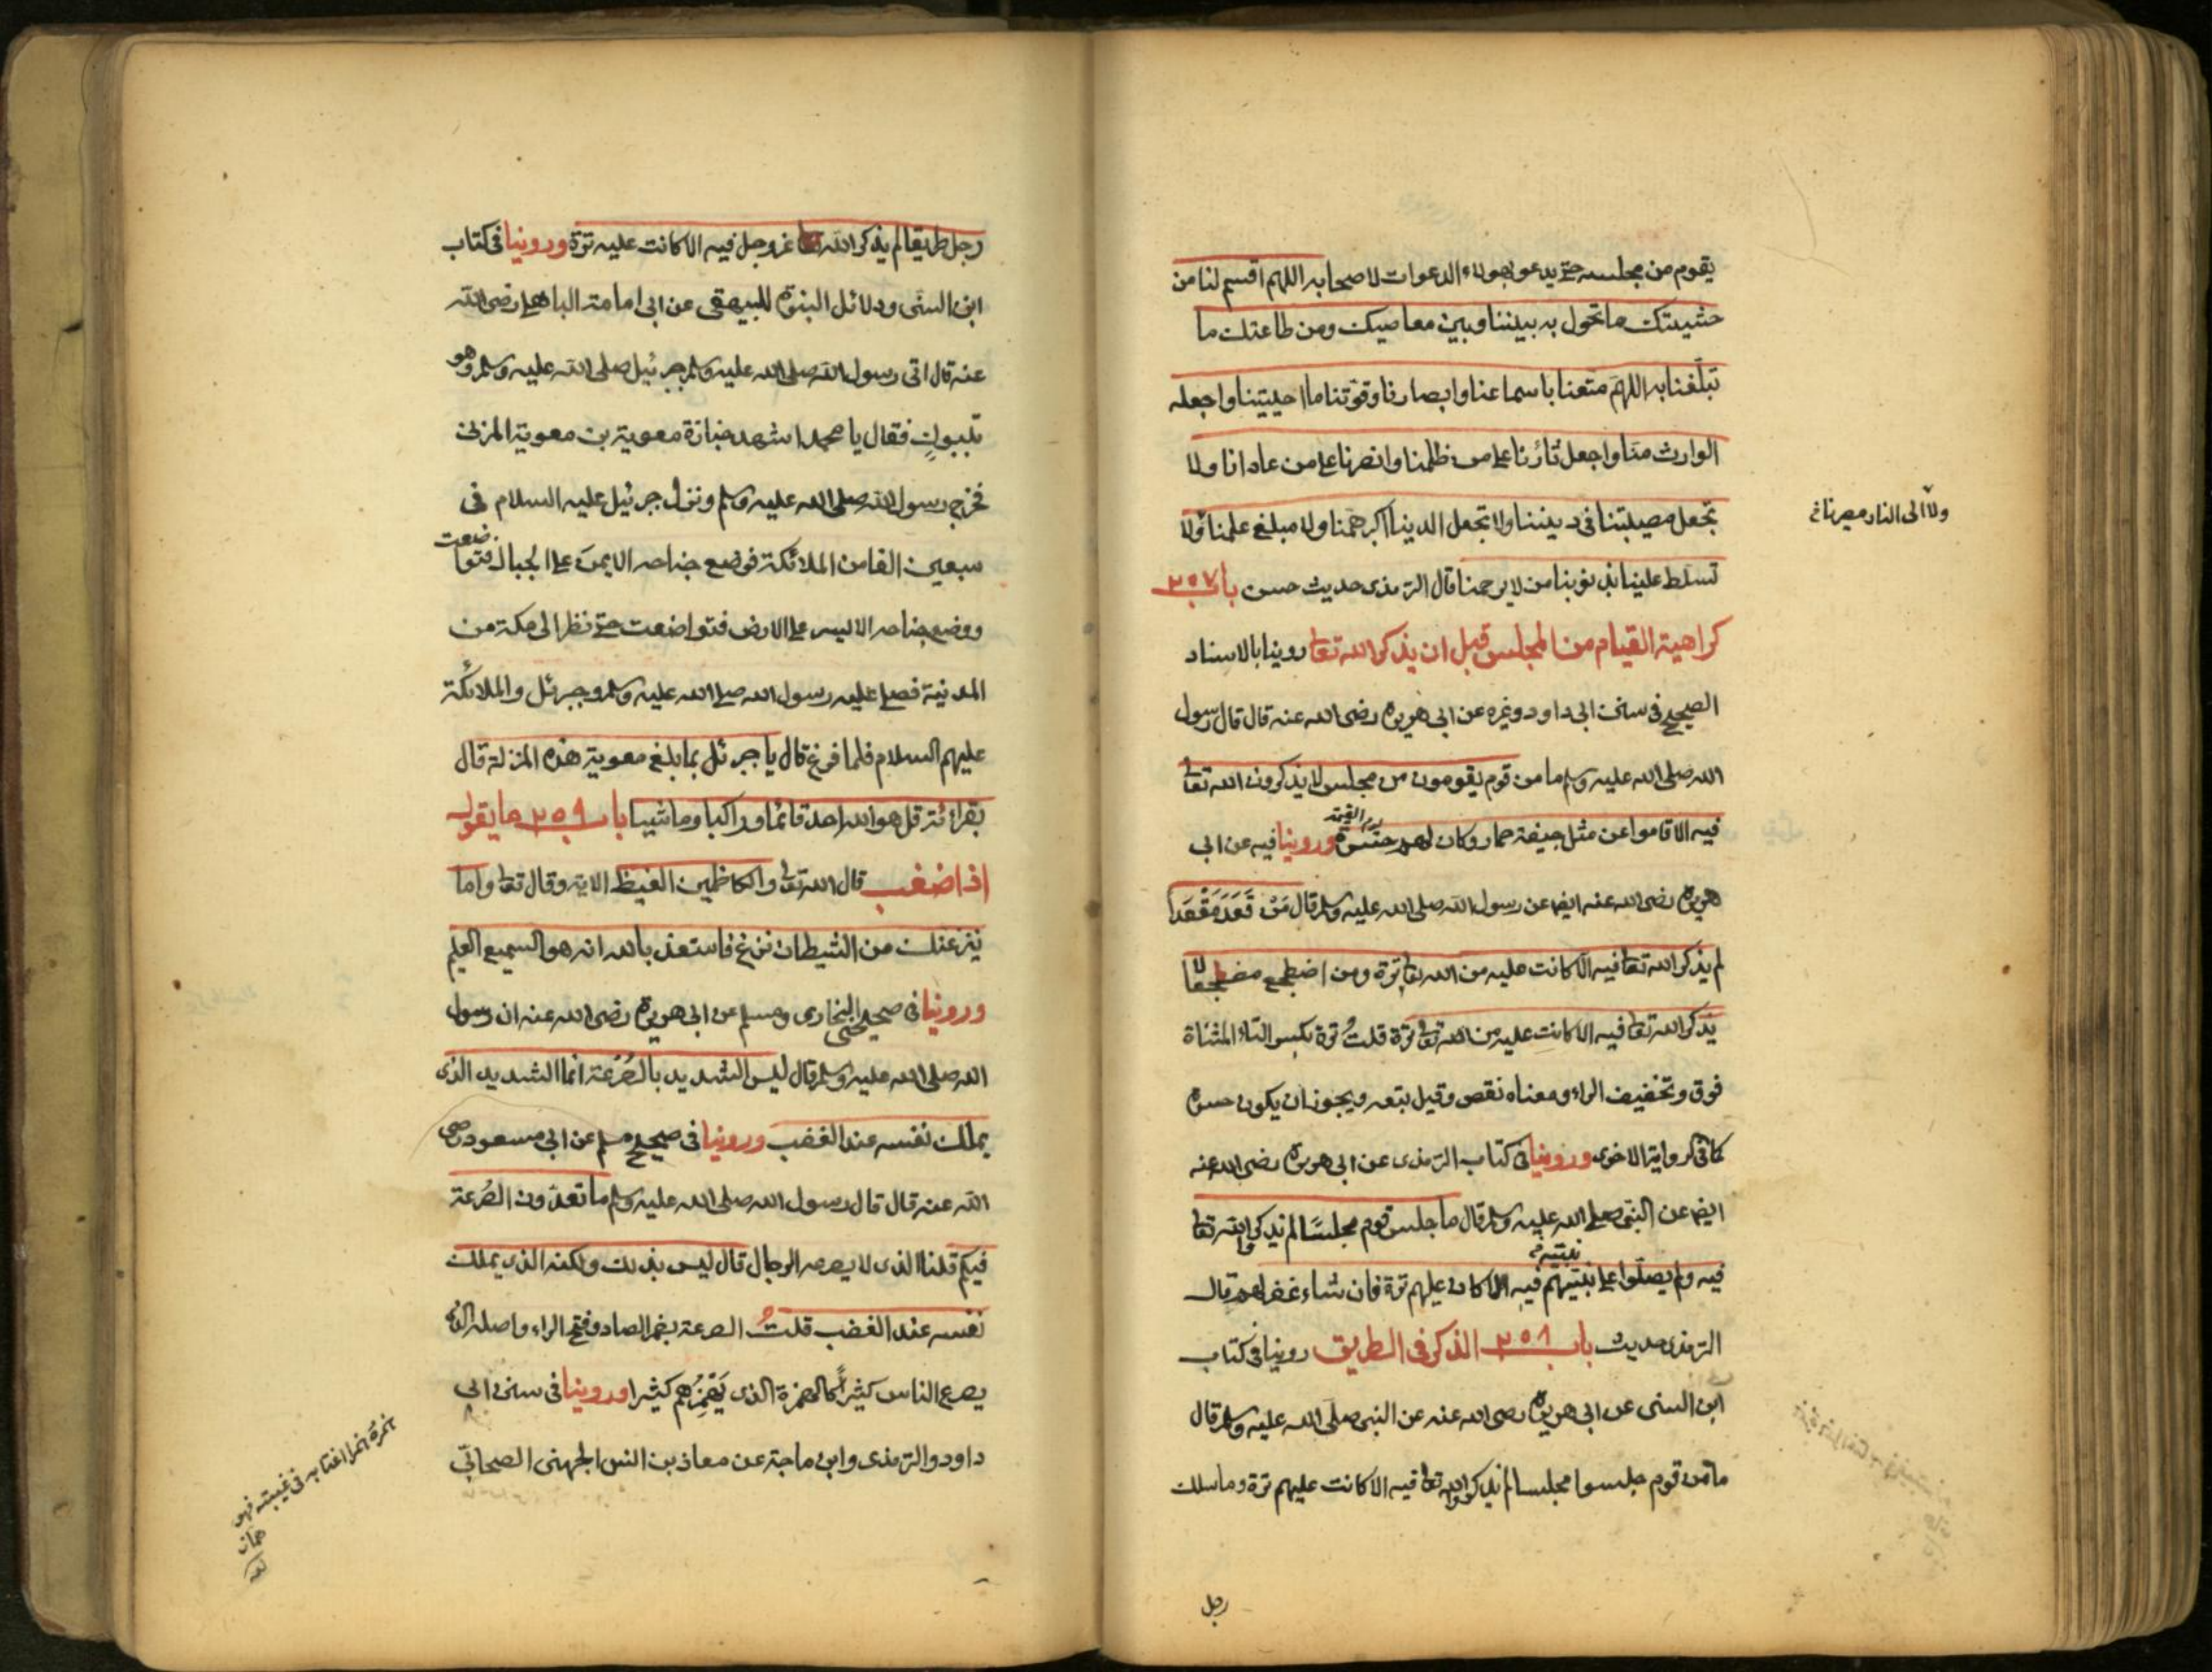 يقوم من مجلسه حتى يدعو بهولاء الدعوات لاصحابه اللهم اقسم لنا من
خشيتك ما تحول به بيننا وبين معاصيك ومن طاعتك ما
تبلغنا به اللهم متعنا باسماعنا وابصارنا وقوتنا ما احييتنا واجعله
الوارث منا واجعل ثارنا على من ظلمنا وانصرنا على من عادانا ولا
تجعل مصيبتنا فى ديننا ولا تجعل الدنيا اكبر همنا ولا مبلغ علمنا ولا
ولا الى النار مصيرنا
تسلط علينا بذنوبنا من لا يرحمنا قال الترمذى حديث حسن باب ٢٥٧
كراهية القيام من المجلس قبل ان يذكر الله تعا روينا بالاسناد
الصحيح فى سنن ابى داود وغيره عن ابى هريرة رضى الله عنه قال قال رسول
الله صلى الله عليه وسلم ما من قوم يقومون من مجلس لا يذكرون الله تعا
فيه الا قاموا عن مثل جيفة حمار وكان لهم حسرة يوم القيمة وروينا فيه عن ابى
هريرة رضى الله عنه ايضا عن رسول الله صلى الله عليه وسلم قال مَنْ قَعَدَ مَقْعَدًا
لم يذكر الله تعا فيه الا كانت عليه من الله تعا ترة ومن اضطجع مضطجعا لا
يذكر الله تعا فيه الا كانت عليه من الله تعا ترة قلتُ ترة بكسر التاء المثناة
فوق وتخفيف الراء ومعناه نقص وقيل تبعه ويجوز ان يكون حسرة
كما فى الرواية الاخرى وروينا فى كتاب الترمذى عن ابى هريرة رضى الله عنه
ايضا عن النبى صلى الله عليه وسلم قال ما جلس قوم مجلسًا لم يذكروا الله تعا
فيه ولم يصلوا على نبيهم فيه الا كان عليهم ترة فان شاء غفر لهم قال
الترمذى حديث باب ٢٥٨ الذكر فى الطريق روينا فى كتاب
ابن السنى عن ابى هريرة رضى الله عنه عن النبى صلى الله عليه وسلم قال
ما من قوم جلسوا مجلسا لم يذكروا الله تعا فيه الا كانت عليهم ترة وما سلك
رجل
رجل طريقا لم يذكر الله تعا عز وجل فيه الا كانت عليه ترة وروينا فى كتاب
ابن السنى ودلائل النبوة للبيهقى عن ابى امامة الباهلى رضى الله
عنه قال اتى رسول الله صلى الله عليه وسلم جبرئيل صلى الله عليه وسلم وهو
بتبوك فقال يا محمد اشهد جنازة معوية بن معوية المزنى
فخرج رسول الله صلى الله عليه وسلم ونزل جبرئيل عليه السلام فى
سبعين الفا من الملائكة فوضع جناحه الايمن على الجبال فتواضعت
ووضع جناحه الايسر على الارض فتواضعت حتى نظر الى مكة من
المدنية فصلى عليه رسول الله صلى الله عليه وسلم وجبرئل والملائكة
عليهم السلام فلما فرغ قال يا جبرئل بما بلغ معوية هذه المنزلة قال
بقرائة قل هو الله احد قائما وراكبا وماشيا باب ٢٥٩ ما يقول
اذا غضب قال الله تعا والكاظمين الغيظ الاية وقال تعا واما
ينزغنك من الشيطان نزغ فاستعذ بالله انه هو السميع العليم
وروينا فى صحيحى البخارى ومسلم عن ابى هريرة رضى الله عنه ان رسول
الله صلى الله عليه وسلم قال ليس الشديد بالصُرَعة انما الشديد الذى
يملك نفسه عند الغضب وروينا فى صحيح مسلم عن ابى مسعود رضى
الله عنه قال قال رسول الله صلى الله عليه وسلم ما تعدّون الصُرعة
فيكم قلنا الذى لا يصرعه الرجال قال ليس بذلك ولكنه الذى يملك
نفسه عند الغضب قلتُ الصرعة بضم الصاد وفتح الراء واصله الذى
يصرع الناس كثيراً كالهمزة الذى يَهْمِزُهم كثيرا وروينا فى سنن ابى
داود والترمذى وابن ماجة عن معاذ بن انس الجهنى الصحابى
همزة همزا اغتابه فى غيبته فهو
هماز